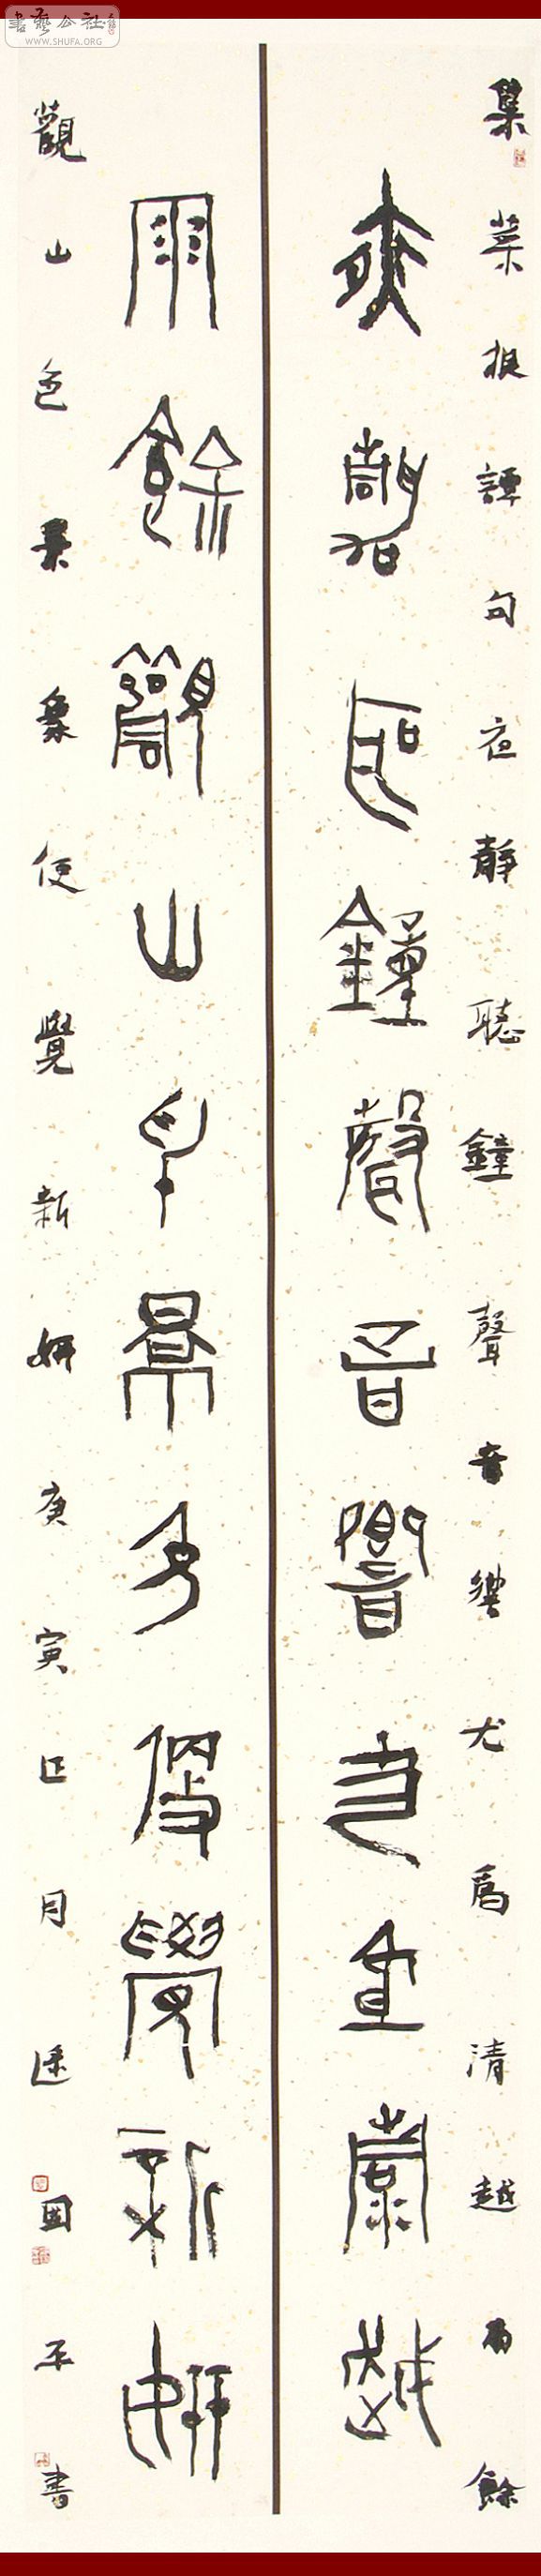 書藝公社
WWW.SHUFA.ORG
集菜根譚句夜靜聽鐘聲音響尤爲清越雨餘
夜靜聽鐘聲音響尤爲清越
雨餘觀山色景象便覺新妍
觀山色景象便覺新妍庚寅正月國平書